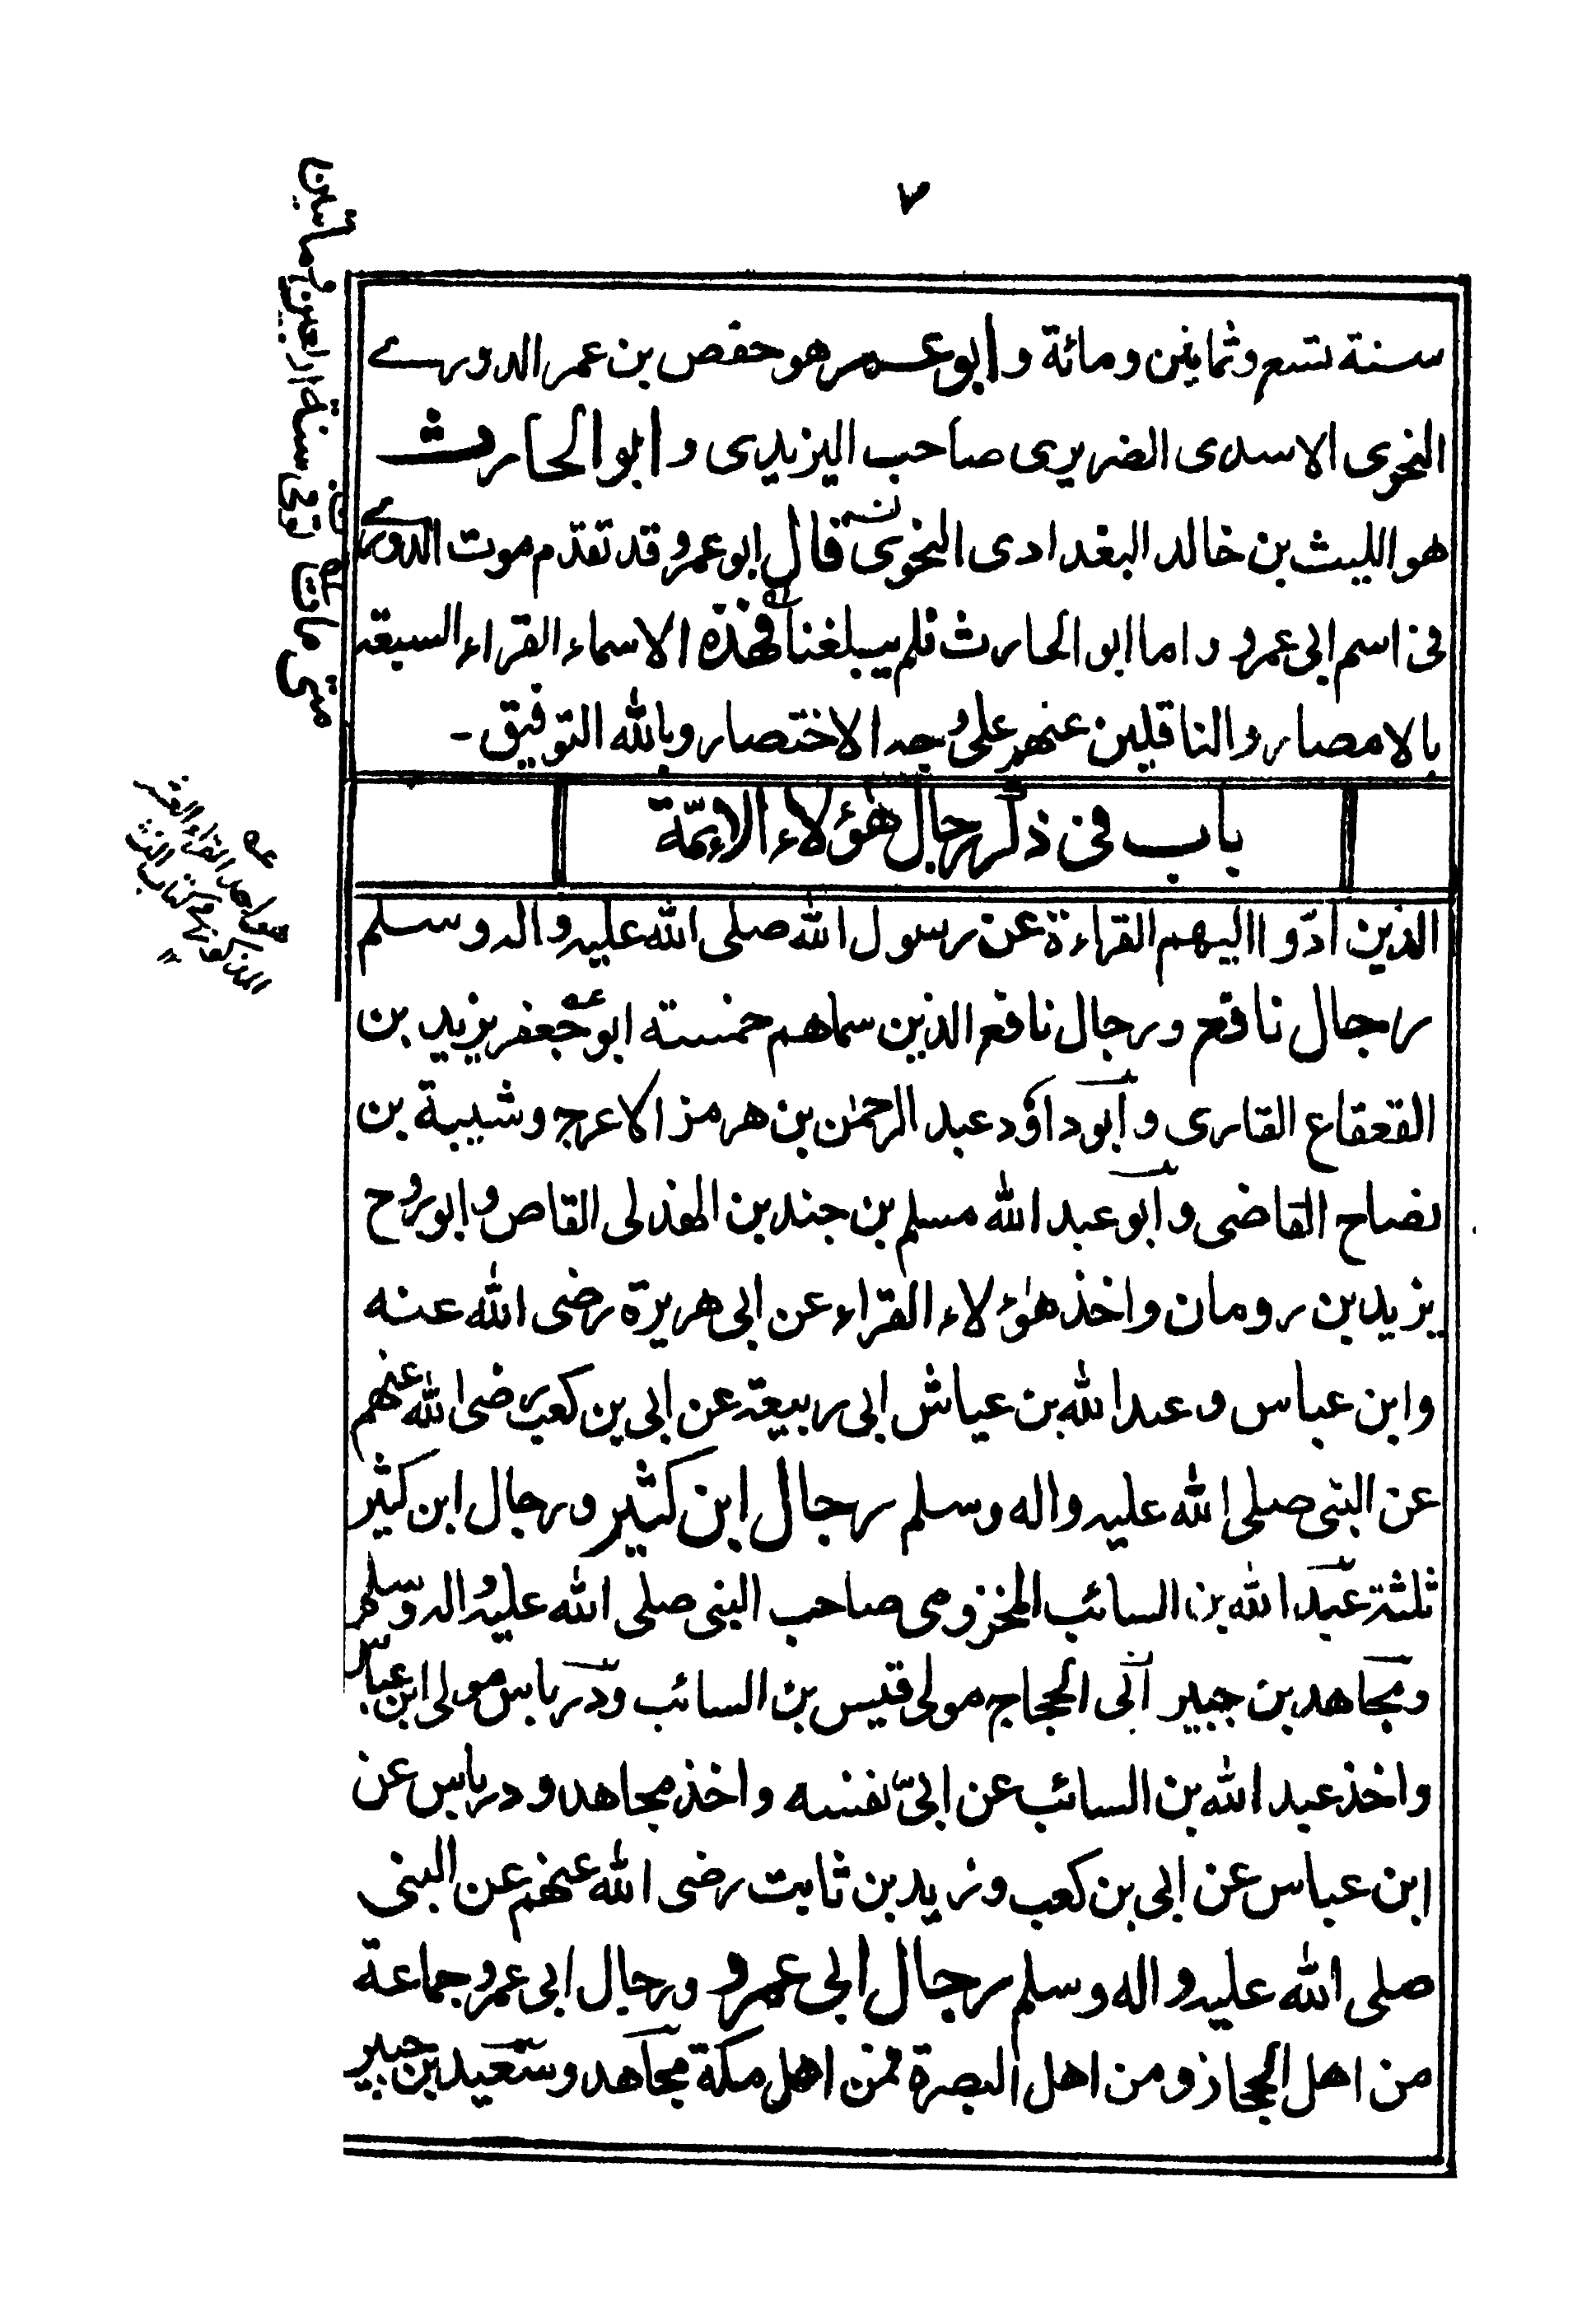 ٧
سنة تسع وثمانين ومائة وابو عمر هو حفص بن عمر الدوري
النحوى الاسدى الضريرى صاحب اليزيدى وابو الحارث
هو الليث بن خالد البغدادى النحوى قال ابو عمرو قد تقدم موت الدوري
فى اسم ابى عمرو واما ابو الحارث فلم يبلغنا فهذه الاسماء القراء السبعة
بالامصار والناقلين عنهم على وجه الاختصار وبالله التوفيق -
باب فى ذكر رجال هؤلاء الائمّة
الذين ادّوا اليهم القراءة عن رسول الله صلى الله عليه واله وسلم
رجال نافع ورجال نافع الذين سماهم خمسة ابو جعفر يزيد بن
القعقاع القارى وابو داؤد عبد الرحمٰن بن هرمز الاعرج وشيبة بن
نصاح القاضى وابو عبد الله مسلم بن جندب بن الهذلى القاص وابو روح
يزيد بن رومان واخذ هٰؤلاء القراء عن ابى هريرة رضى الله عنه
وابن عباس وعبد الله بن عياش ابى ربيعة عن ابى بن كعب رضى الله عنهم
عن النبى صلى الله عليه واله وسلم رجال ابن كثير ورجال ابن كثير
ثلثة عبد الله بن السائب المخزومى صاحب النبى صلى الله عليه واله وسلم
ومجاهد بن جبير ابى الحجاج مولى قيس بن السائب ودرباس مولى ابن عباس
واخذ عبد الله بن السائب عن ابىّ نفسه واخذ مجاهد ودرباس عن
ابن عباس عن ابى بن كعب وزيد بن ثابت رضى الله عنهم عن النبى
صلى الله عليه واله وسلم رجال ابى عمرو ورجال ابى عمرو جماعة
من اهل الحجاز ومن اهل البصرة فمن اهل مكة مجاهد وسعيد بن جبير
متى مات
توفى سنة اربعين و مائتين
عه
هو احد القراء العشر
المذكور فى كتاب النشر